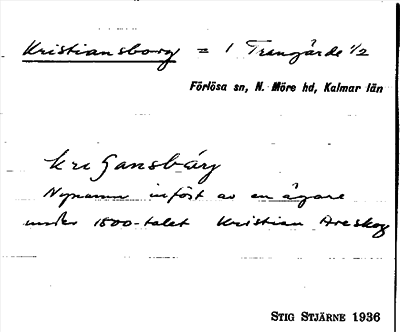 Kristiansborg = 1 Trangårde 1/2
Förlösa sn, N. Möre hd, Kalmar län
krisansbärg
Nynamn infört av en ägare
under 1800-talet Kristian Areskog
STIG STJÄRNE 1936